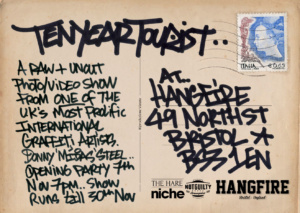 TENYEARTOURIST..
A RAW + UNCUT
PHOTO/VIDEO SHOW
FROM ONE OF THE
UK's MOST PROLIFIC
INTERNATIONAL
GRAFFITI ARTISTS.
OPENING PARTY 7th
NOV 7pm... SHOW
RUNS till 30th NOV
AT..
HANGFIRE
49 NORTH ST
BRISTOL
BS3 1EN
ITALIA
€0,62
THE HARE
niche
NOTGUILTY
HANGFIRE
Bristol - England